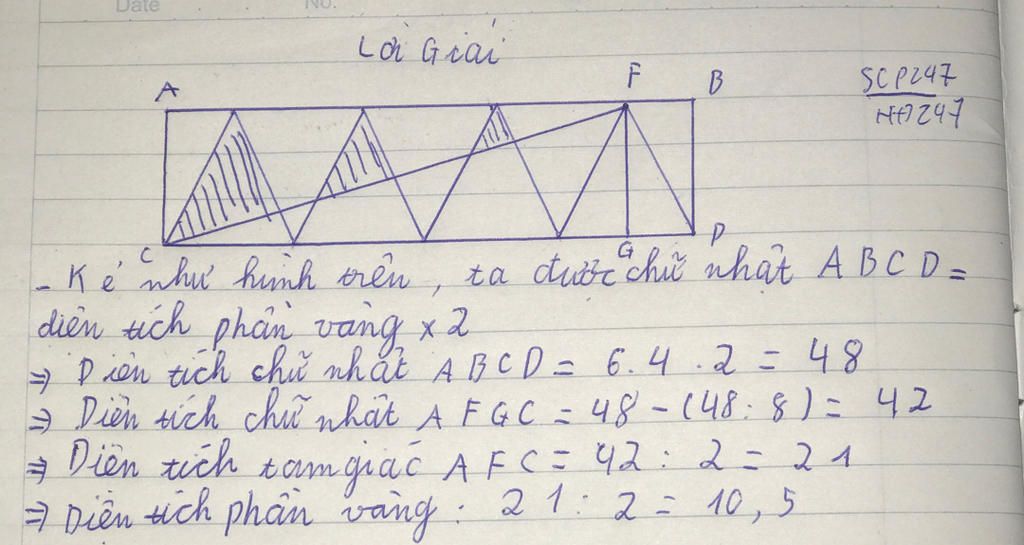 Date No.
Lời Giải
A F B
SCP247
HD247
C G D
- Kẻ như hình trên, ta được chữ nhật ABCD =
diện tích phần vàng x 2
=> Diện tích chữ nhật ABCD = 6.4.2 = 48
=> Diện tích chữ nhật AFGC = 48-(48:8) = 42
=> Diện tích tam giác AFC = 42:2 = 21
=> Diện tích phần vàng: 21:2 = 10,5